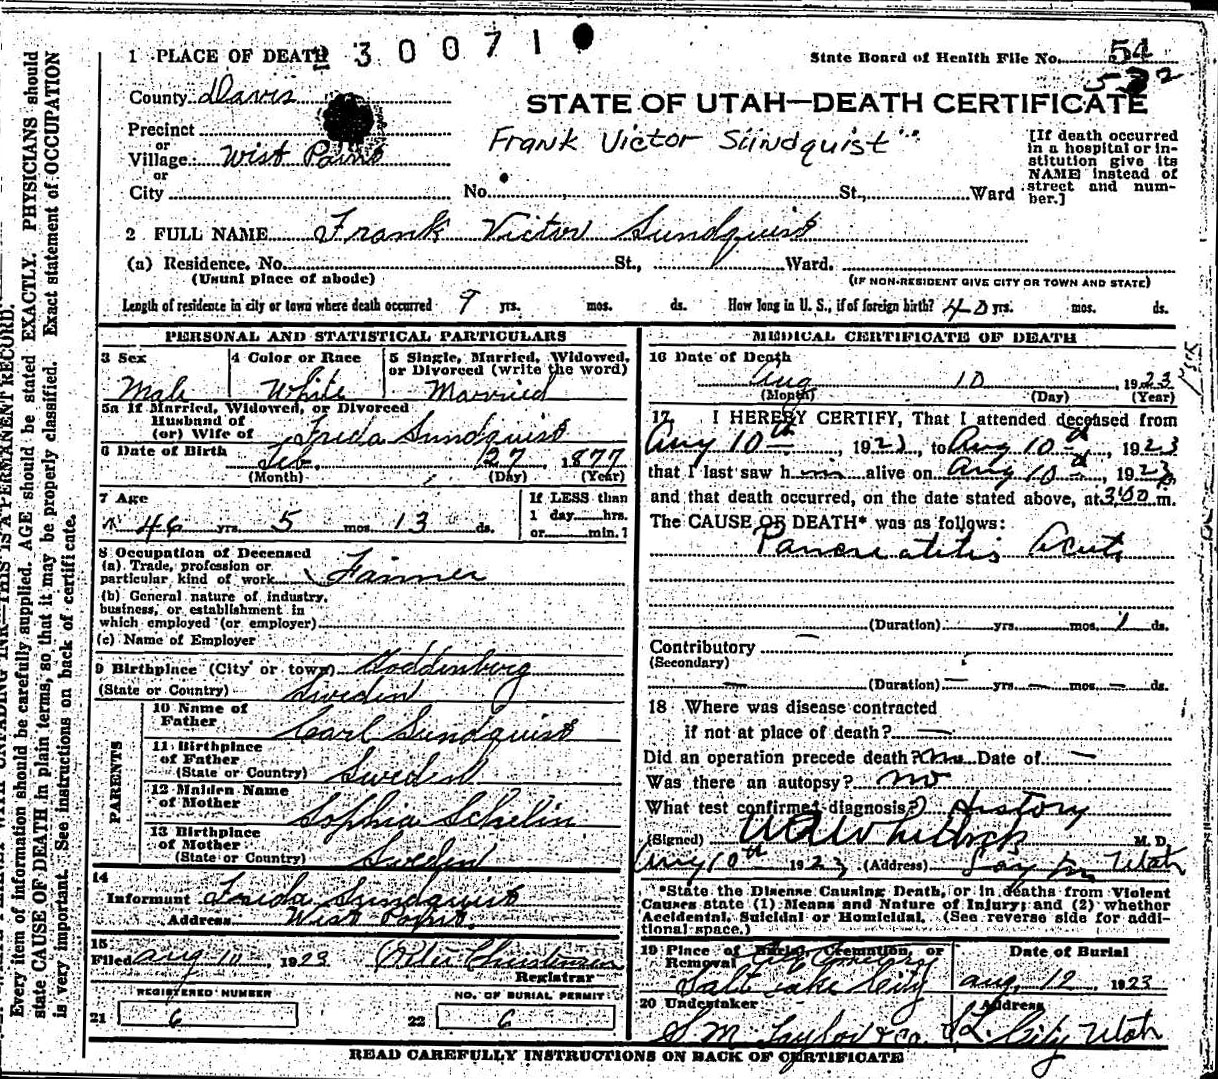 1 PLACE OF DEATH 2300710
State Board of Health File No. 54
532
County Davis
STATE OF UTAH—DEATH CERTIFICATE
Precinct
Frank Victor Sundquist
or
Village: West Point
or
City
No. St., Ward
[If death occurred
in a hospital or in-
stitution give its
NAME instead of
street and num-
ber.]
2 FULL NAME Frank Victor Sundquist
(a) Residence. No. St., Ward.
(Usual place of abode)
(IF NON-RESIDENT GIVE CITY OR TOWN AND STATE)
Length of residence in city or town where death occurred 9 yrs. mos. ds. How long in U. S., if of foreign birth? 40 yrs. mos. ds.
PERSONAL AND STATISTICAL PARTICULARS
3 Sex
Male
4 Color or Race
White
5 Single, Married, Widowed,
or Divorced (write the word)
Married
5a If Married, Widowed, or Divorced
Husband of
(or) Wife of Frida Sundquist
6 Date of Birth Feb. 27 1877
(Month) (Day) (Year)
7 Age
46 yrs. 5 mos. 13 ds.
If LESS than
1 day hrs.
or min.?
8 Occupation of Deceased
(a) Trade, profession or
particular kind of work Farmer
(b) General nature of industry,
business, or establishment in
which employed (or employer)
(c) Name of Employer
9 Birthplace (City or town) Goddenberg
(State or Country) Sweden
PARENTS
10 Name of
Father Carl Sundquist
11 Birthplace
of Father
(State or Country) Sweden
12 Maiden Name
of Mother Sophia Schelin
13 Birthplace
of Mother
(State or Country) Sweden
14
Informant Frida Sundquist
Address West Point.
15
Filed Aug 10, 1923
Registrar
REGISTERED NUMBER
21 6
NO. OF BURIAL PERMIT
22 6
MEDICAL CERTIFICATE OF DEATH
16 Date of Death
Aug 10, 1923
(Month) (Day) (Year)
17 I HEREBY CERTIFY, That I attended deceased from
Aug 10th, 1923, to Aug 10th, 1923
that I last saw him alive on Aug 10th, 1923,
and that death occurred, on the date stated above, at 3:00 m.
The CAUSE OF DEATH* was as follows:
Pancreatitis Acute
(Duration) yrs. mos. 1 ds.
Contributory —
(Secondary)
— (Duration) — yrs. — mos. — ds.
18 Where was disease contracted
if not at place of death? —
Did an operation precede death? No Date of —
Was there an autopsy? no
What test confirmed diagnosis? History
(Signed) M. D.
Aug 10th 1923 (Address) Layton Utah
*State the Disease Causing Death, or in deaths from Violent
Causes state (1) Means and Nature of Injury; and (2) whether
Accidental, Suicidal or Homicidal. (See reverse side for addi-
tional space.)
19 Place of Burial, Cremation, or
Removal
Salt Lake City
Date of Burial
Aug. 12, 1923
20 Undertaker
S. M. Taylor & Co.
Address
S.L. City Utah
READ CAREFULLY INSTRUCTIONS ON BACK OF CERTIFICATE
THIS IS A PERMANENT RECORD.
Every item of information should be carefully supplied. AGE should be stated EXACTLY. PHYSICIANS should
state CAUSE OF DEATH in plain terms, so that it may be properly classified. Exact statement of OCCUPATION
is very important. See instructions on back of certificate.